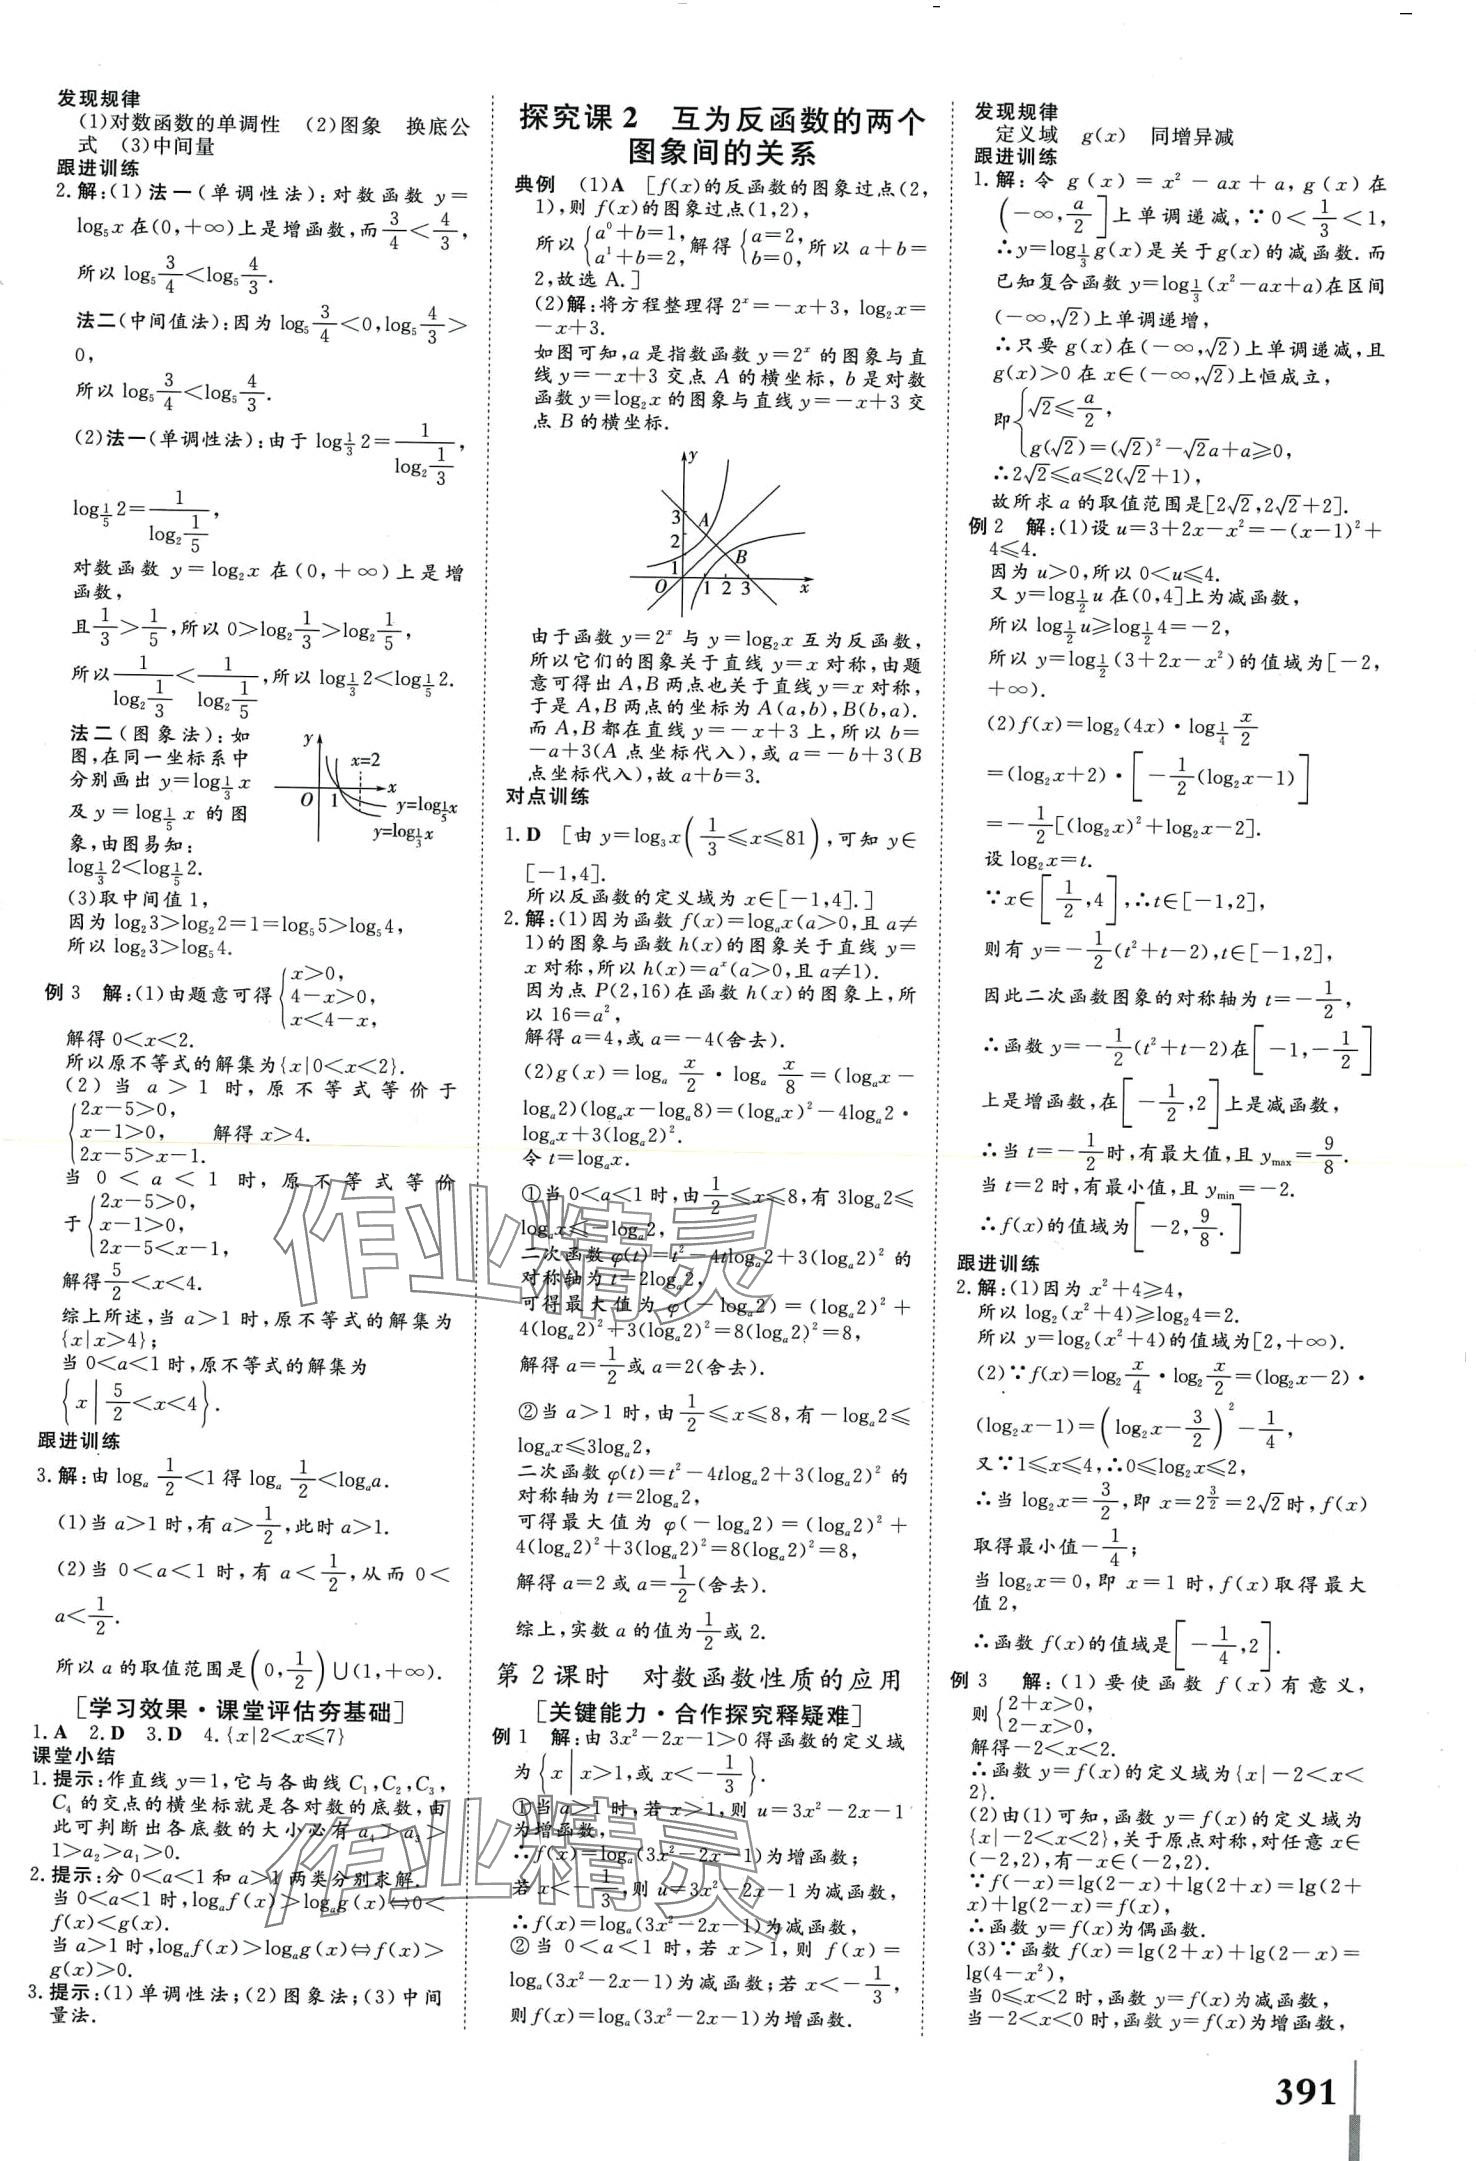 发现规律
(1)对数函数的单调性　(2)图象　换底公
式　(3)中间量
跟进训练
2.解:(1)法一(单调性法):对数函数 y=
log₅x在(0,+∞)上是增函数,而3/4<4/3,
所以 log₅3/4<log₅4/3.
法二(中间值法):因为 log₅3/4<0,log₅4/3>
0,
所以 log₅3/4<log₅4/3.
(2)法一(单调性法):由于 log_{1/3}2=1/(log₂1/3),
log_{1/5}2=1/(log₂1/5),
对数函数 y=log₂x 在(0,+∞)上是增
函数,
且1/3>1/5,所以 0>log₂1/3>log₂1/5,
所以1/(log₂1/3)<1/(log₂1/5),所以 log_{1/3}2<log_{1/5}2.
法二(图象法):如
图,在同一坐标系中
分别画出 y=log_{1/3}x
及 y=log_{1/5}x 的图
象,由图易知:
log_{1/3}2<log_{1/5}2.
y
x=2
O 1 x
y=log_{1/5}x
y=log_{1/3}x
(3)取中间值 1,
因为 log₂3>log₂2=1=log₅5>log₅4,
所以 log₂3>log₅4.
例 3　解:(1)由题意可得{x>0,
4-x>0,
x<4-x,
解得 0<x<2.
所以原不等式的解集为{x|0<x<2}.
(2)当 a>1 时,原不等式等价于
{2x-5>0,
x-1>0,　解得 x>4.
2x-5>x-1.
当 0<a<1 时,原不等式等价
于{2x-5>0,
x-1>0,
2x-5<x-1,
解得5/2<x<4.
综上所述,当 a>1 时,原不等式的解集为
{x|x>4};
当 0<a<1 时,原不等式的解集为
{x|5/2<x<4}.
跟进训练
3.解:由 logₐ1/2<1 得 logₐ1/2<logₐa.
(1)当 a>1 时,有 a>1/2,此时 a>1.
(2)当 0<a<1 时,有 a<1/2,从而 0<
a<1/2.
所以 a 的取值范围是(0,1/2)∪(1,+∞).
[学习效果·课堂评估夯基础]
1.A　2.D　3.D　4.{x|2<x≤7}
课堂小结
1.提示:作直线 y=1,它与各曲线 C₁,C₂,C₃,
C₄ 的交点的横坐标就是各对数的底数,由
此可判断出各底数的大小必有 a₄>a₃>
1>a₂>a₁>0.
2.提示:分 0<a<1 和 a>1 两类分别求解.
当 0<a<1 时,logₐf(x)>logₐg(x)⇔0<
f(x)<g(x).
当 a>1 时,logₐf(x)>logₐg(x)⇔f(x)>
g(x)>0.
3.提示:(1)单调性法;(2)图象法;(3)中间
量法.
探究课 2　互为反函数的两个
图象间的关系
典例　(1)A　[f(x)的反函数的图象过点(2,
1),则 f(x)的图象过点(1,2),
所以{a⁰+b=1, a¹+b=2,解得{a=2, b=0,所以 a+b=
2,故选 A.]
(2)解:将方程整理得 2ˣ=-x+3,log₂x=
-x+3.
如图可知,a 是指数函数 y=2ˣ 的图象与直
线 y=-x+3 交点 A 的横坐标,b 是对数
函数 y=log₂x 的图象与直线 y=-x+3 交
点 B 的横坐标.
y
3 A
2
1 B
O 1 2 3 x
由于函数 y=2ˣ 与 y=log₂x 互为反函数,
所以它们的图象关于直线 y=x 对称,由题
意可得出 A,B 两点也关于直线 y=x 对称,
于是 A,B 两点的坐标为 A(a,b),B(b,a).
而 A,B 都在直线 y=-x+3 上,所以 b=
-a+3(A 点坐标代入),或 a=-b+3(B
点坐标代入),故 a+b=3.
对点训练
1.D　[由 y=log₃x(1/3≤x≤81),可知 y∈
[-1,4].
所以反函数的定义域为 x∈[-1,4].]
2.解:(1)因为函数 f(x)=logₐx(a>0,且 a≠
1)的图象与函数 h(x)的图象关于直线 y=
x 对称,所以 h(x)=aˣ(a>0,且 a≠1).
因为点 P(2,16)在函数 h(x)的图象上,所
以 16=a²,
解得 a=4,或 a=-4(舍去).
(2)g(x)=logₐx/2·logₐx/8=(logₐx-
logₐ2)(logₐx-logₐ8)=(logₐx)²-4logₐ2·
logₐx+3(logₐ2)².
令 t=logₐx.
①当 0<a<1 时,由1/2≤x≤8,有 3logₐ2≤
logₐx≤-logₐ2,
二次函数 φ(t)=t²-4tlogₐ2+3(logₐ2)² 的
对称轴为 t=2logₐ2,
可得最大值为 φ(-logₐ2)=(logₐ2)²+
4(logₐ2)²+3(logₐ2)²=8(logₐ2)²=8,
解得 a=1/2或 a=2(舍去).
②当 a>1 时,由1/2≤x≤8,有-logₐ2≤
logₐx≤3logₐ2,
二次函数 φ(t)=t²-4tlogₐ2+3(logₐ2)² 的
对称轴为 t=2logₐ2,
可得最大值为 φ(-logₐ2)=(logₐ2)²+
4(logₐ2)²+3(logₐ2)²=8(logₐ2)²=8,
解得 a=2 或 a=1/2(舍去).
综上,实数 a 的值为1/2或 2.
第 2 课时　对数函数性质的应用
[关键能力·合作探究释疑难]
例 1　解:由 3x²-2x-1>0 得函数的定义域
为{x|x>1,或 x<-1/3}.
①当 a>1 时,若 x>1,则 u=3x²-2x-1
为增函数,
∴f(x)=logₐ(3x²-2x-1)为增函数;
若 x<-1/3,则 u=3x²-2x-1 为减函数,
∴f(x)=logₐ(3x²-2x-1)为减函数,
②当 0<a<1 时,若 x>1,则 f(x)=
logₐ(3x²-2x-1)为减函数;若 x<-1/3,
则 f(x)=logₐ(3x²-2x-1)为增函数.
发现规律
定义域　g(x)　同增异减
跟进训练
1.解:令 g(x)=x²-ax+a,g(x)在
(-∞,a/2]上单调递减,∵0<1/3<1,
∴y=log_{1/3}g(x)是关于 g(x)的减函数.而
已知复合函数 y=log_{1/3}(x²-ax+a)在区间
(-∞,√2)上单调递增,
∴只要 g(x)在(-∞,√2)上单调递减,且
g(x)>0 在 x∈(-∞,√2)上恒成立,
即{√2≤a/2,
g(√2)=(√2)²-√2a+a≥0,
∴2√2≤a≤2(√2+1),
故所求 a 的取值范围是[2√2,2√2+2].
例 2　解:(1)设 u=3+2x-x²=-(x-1)²+
4≤4.
因为 u>0,所以 0<u≤4.
又 y=log_{1/2}u 在(0,4]上为减函数,
所以 log_{1/2}u≥log_{1/2}4=-2,
所以 y=log_{1/2}(3+2x-x²)的值域为[-2,
+∞).
(2)f(x)=log₂(4x)·log_{1/4}x/2
=(log₂x+2)·[-1/2(log₂x-1)]
=-1/2[(log₂x)²+log₂x-2].
设 log₂x=t.
∵x∈[1/2,4],∴t∈[-1,2],
则有 y=-1/2(t²+t-2),t∈[-1,2],
因此二次函数图象的对称轴为 t=-1/2,
∴函数 y=-1/2(t²+t-2)在[-1,-1/2]
上是增函数,在[-1/2,2]上是减函数,
∴当 t=-1/2时,有最大值,且 yₘₐₓ=9/8.
当 t=2 时,有最小值,且 yₘᵢₙ=-2.
∴f(x)的值域为[-2,9/8.]
跟进训练
2.解:(1)因为 x²+4≥4,
所以 log₂(x²+4)≥log₂4=2.
所以 y=log₂(x²+4)的值域为[2,+∞).
(2)∵f(x)=log₂x/4·log₂x/2=(log₂x-2)·
(log₂x-1)=(log₂x-3/2)²-1/4,
又∵1≤x≤4,∴0≤log₂x≤2,
∴当 log₂x=3/2,即 x=2^{3/2}=2√2时,f(x)
取得最小值-1/4;
当 log₂x=0,即 x=1 时,f(x)取得最大
值 2,
∴函数 f(x)的值域是[-1/4,2].
例 3　解:(1)要使函数 f(x)有意义,
则{2+x>0,
2-x>0,
解得-2<x<2.
∴函数 y=f(x)的定义域为{x|-2<x<
2}.
(2)由(1)可知,函数 y=f(x)的定义域为
{x|-2<x<2},关于原点对称,对任意 x∈
(-2,2),有-x∈(-2,2).
∵f(-x)=lg(2-x)+lg(2+x)=lg(2+
x)+lg(2-x)=f(x),
∴函数 y=f(x)为偶函数.
(3)∵函数 f(x)=lg(2+x)+lg(2-x)=
lg(4-x²),
当 0≤x<2 时,函数 y=f(x)为减函数,
当-2<x<0 时,函数 y=f(x)为增函数,
391
作业精灵
作业精灵